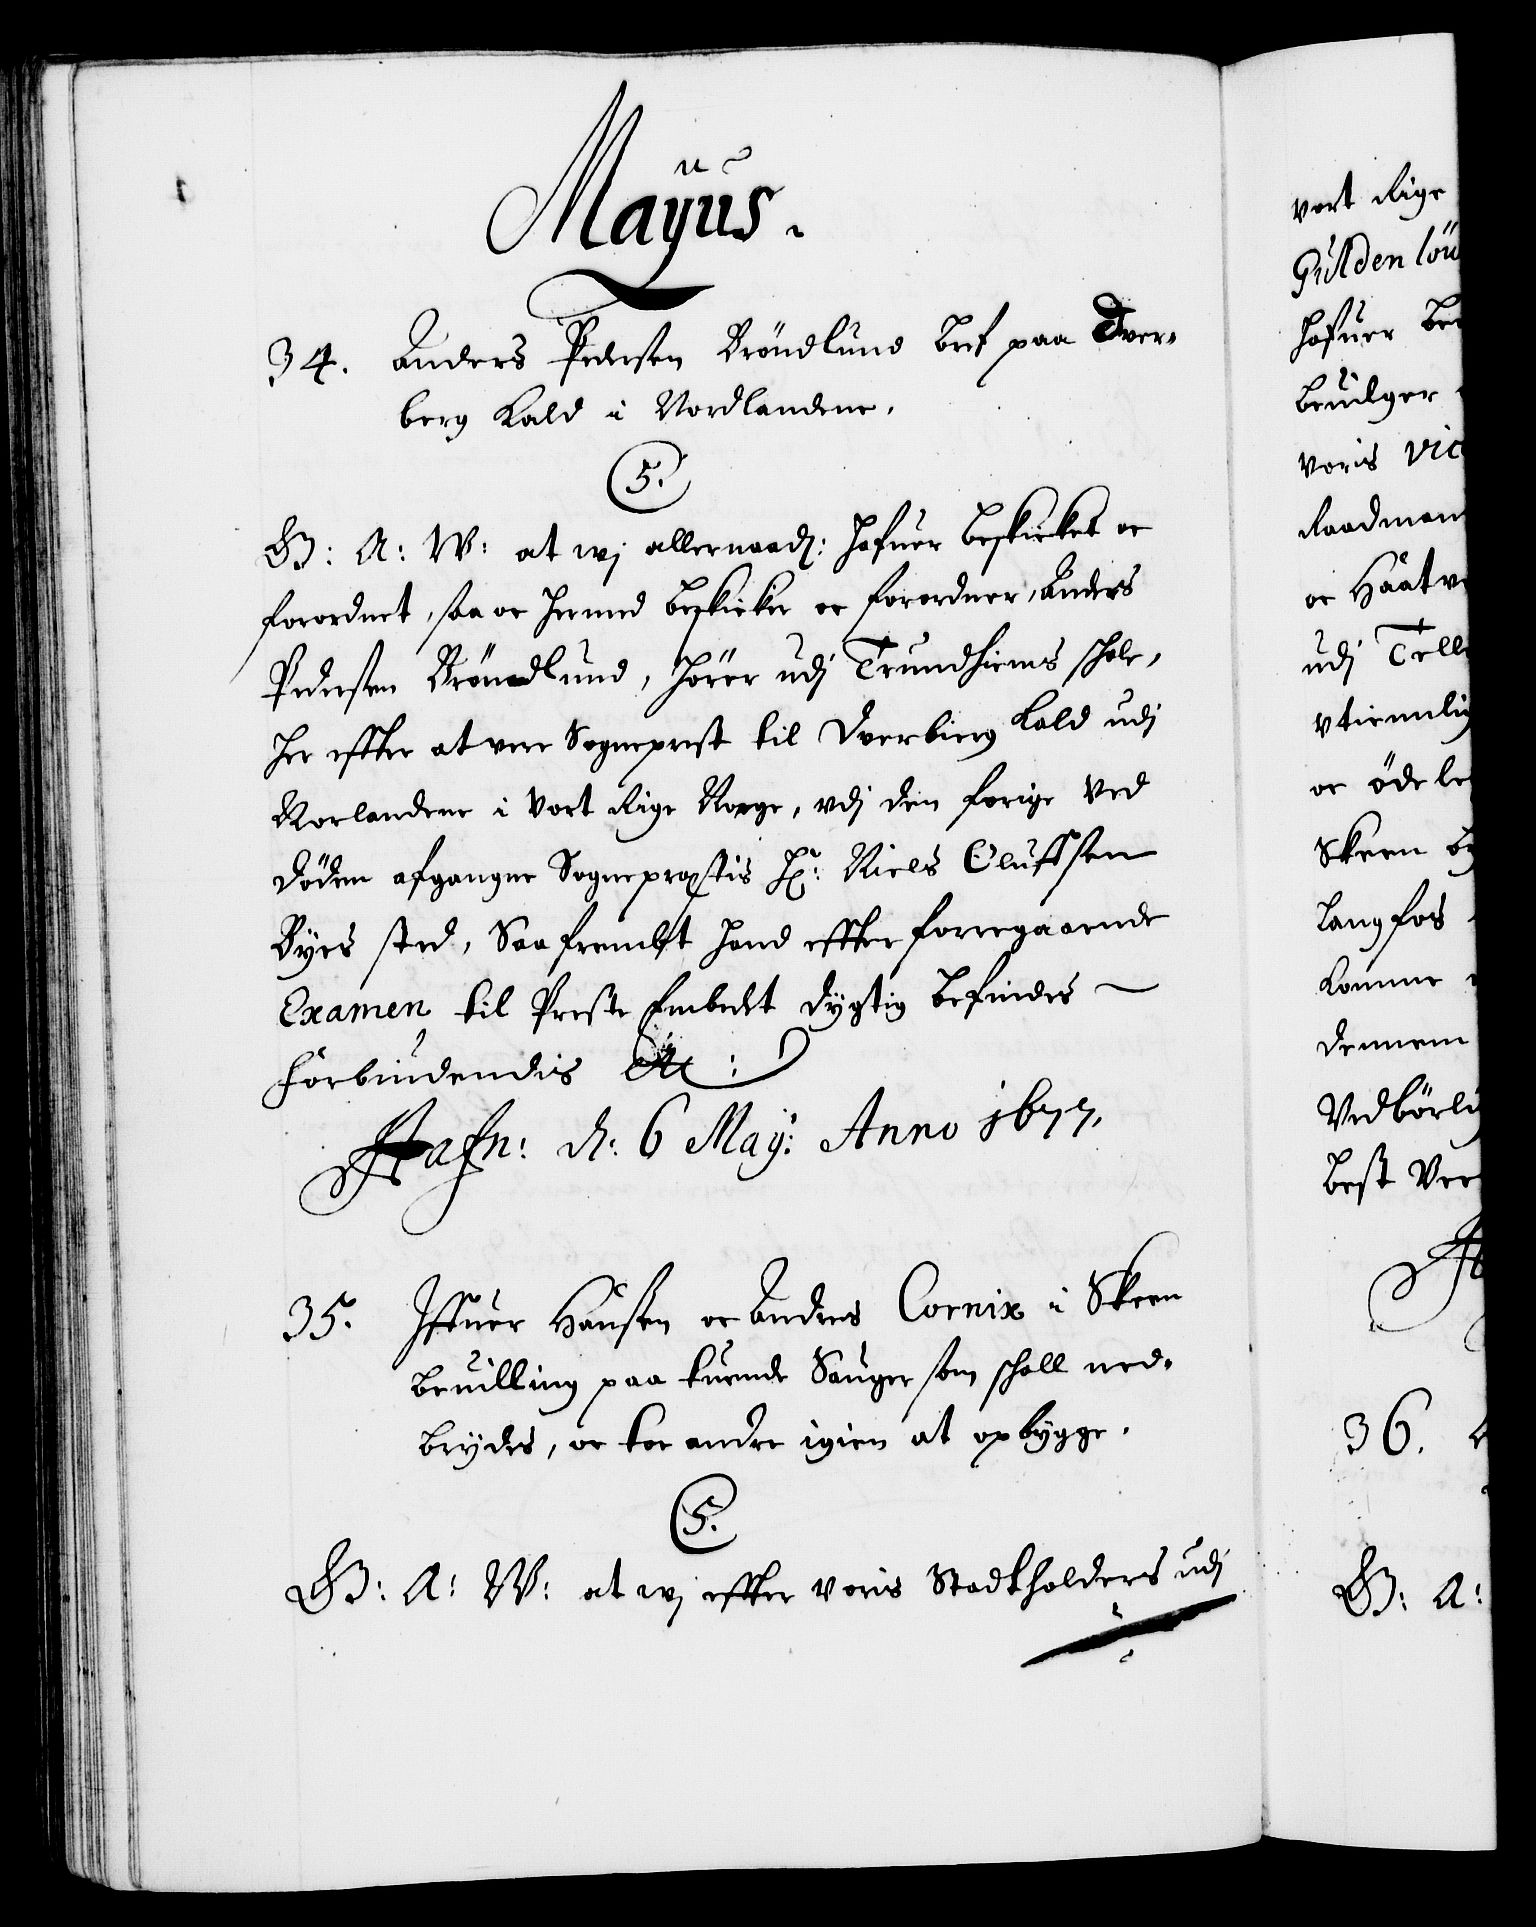 Mayus.
34. Anders Pedersen Bröndlund bref paa Dver-
berg Kald i Nordlandene.
C 5.
G: A: W: at wj allernaadj: hafuer beskicket oc
forordnet, saa oc hermed beskicker oc forordner, Anders
Pedersen Bröndlund, hörer udj Trundhiems schole,
her effter at vere Sogneprest til Dverbierg Kald udj
Norlandene i Vort Rige Norge, vdj den forige ved
döden afgangne Sogneprestis Hr: Niels Oluffsen
Byes sted, Saafrembt hand effter foregaaende
Examen til Preste Embedet dygtig befindes
Forbiudendis etc:
Hafn: d: 6 May: Anno 1677.
35. Iffuer Hansen oc Anders Cornix i Skeen
beuilling paa tuende Sauger som schall ned-
brydes, oc toe andre igien at opbygge.
C 5.
G: A: W: at wj effter voris Stadtholders udj
vort Rige
Güldenlöu
hafuer be
beuilger
voris vic
Raadman
oc Häatv
udj Telle
vtienlig
oc öde le
Skeen by
langfos
komme
dennem
Vedbörli
best Ver
36.
G: A: